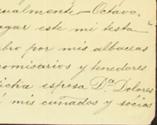 ualmente = Octavo,
agar este mi testa
bro por mis albaceas
omisarios y tenedores
icha esposa Dª Dolores
mis cuñados y socios